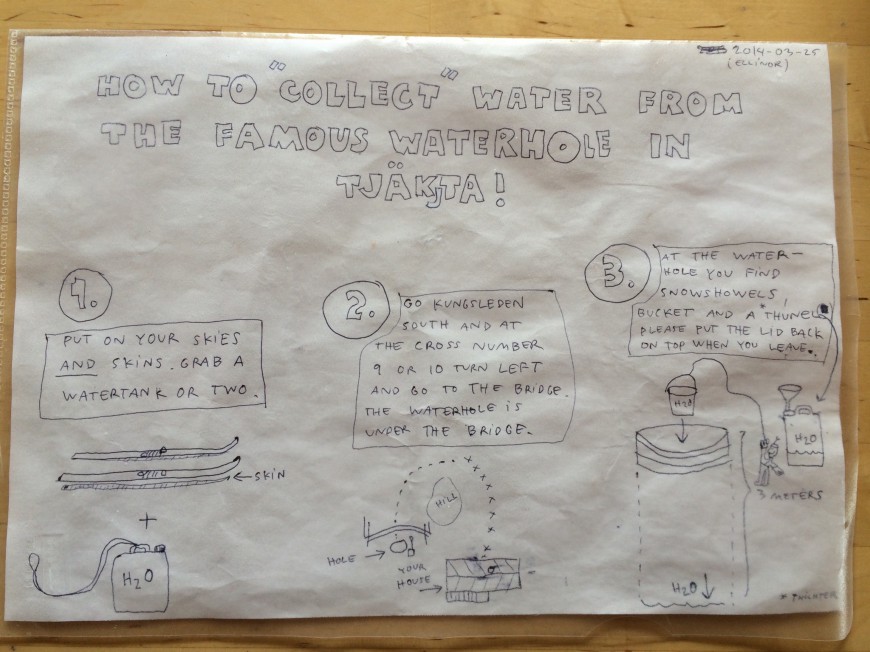 2014-03-25
(ELLINOR)
HOW TO "COLLECT" WATER FROM
THE FAMOUS WATERHOLE IN
TJÄKJTA!
1.
PUT ON YOUR SKIES
AND SKINS. GRAB A
WATERTANK OR TWO.
← SKIN
+
H2O
2.
GO KUNGSLEDEN
SOUTH AND AT
THE CROSS NUMBER
9 OR 10 TURN LEFT
AND GO TO THE BRIDGE.
THE WATERHOLE IS
UNDER THE BRIDGE.
HILL
HOLE →
YOUR
HOUSE →
3.
AT THE WATER-
HOLE YOU FIND
SNOWSHOWELS,
BUCKET AND A *THUNEL
PLEASE PUT THE LID BACK
ON TOP WHEN YOU LEAVE.
H2O
H2O
3 METERS
H2O